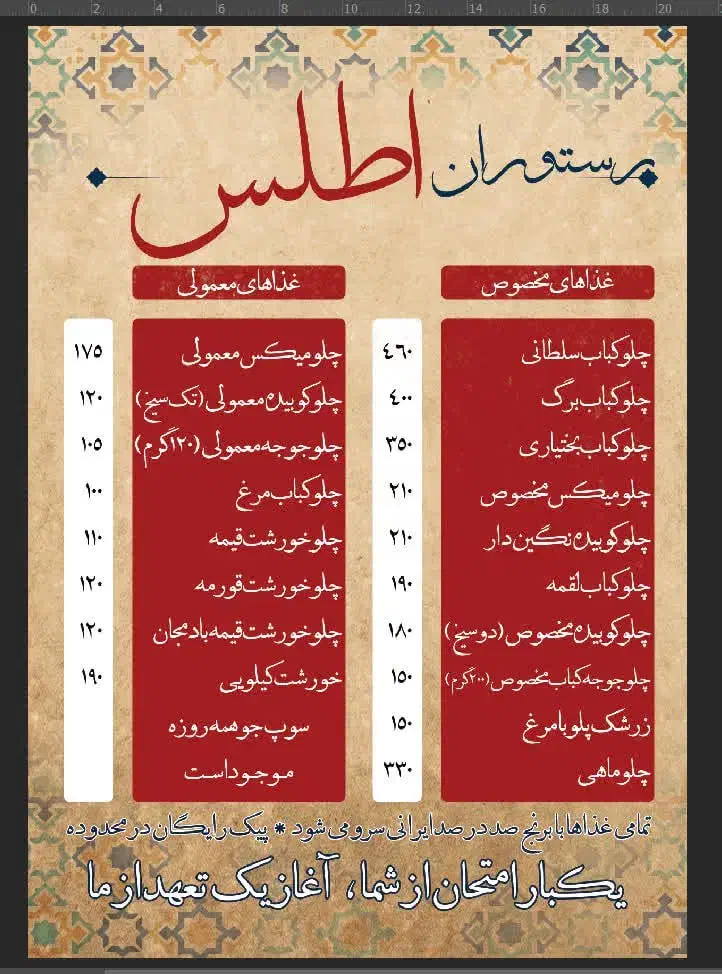 0 2 4 6 8 10 12 14 16 18 20
رستوران اطلس
غذاهای مخصوص
چلوکباب سلطانی ۴۶۰
چلوکباب برگ ۴۰۰
چلوکباب بختیاری ۳۵۰
چلو میکس مخصوص ۲۱۰
چلوکوبیده نگین دار ۲۱۰
چلوکباب لقمه ۱۹۰
چلوکوبیده مخصوص (دو سیخ) ۱۸۰
چلو جوجه کباب مخصوص (۲۰۰گرم) ۱۵۰
زرشک پلو با مرغ ۱۵۰
چلو ماهی ۳۳۰
غذاهای معمولی
چلو میکس معمولی ۱۷۵
چلوکوبیده معمولی (تک سیخ) ۱۲۰
چلو جوجه معمولی (۱۲۰گرم) ۱۰۵
چلوکباب مرغ ۱۰۰
چلو خورشت قیمه ۱۱۰
چلو خورشت قورمه ۱۲۰
چلو خورشت قیمه بادمجان ۱۲۰
خورشت کیلویی ۱۹۰
سوپ جو همه روزه
موجود است
تمامی غذاها با برنج صد در صد ایرانی سرو می شود * پیک رایگان در محدوده
یکبار امتحان از شما، آغاز یک تعهد از ما